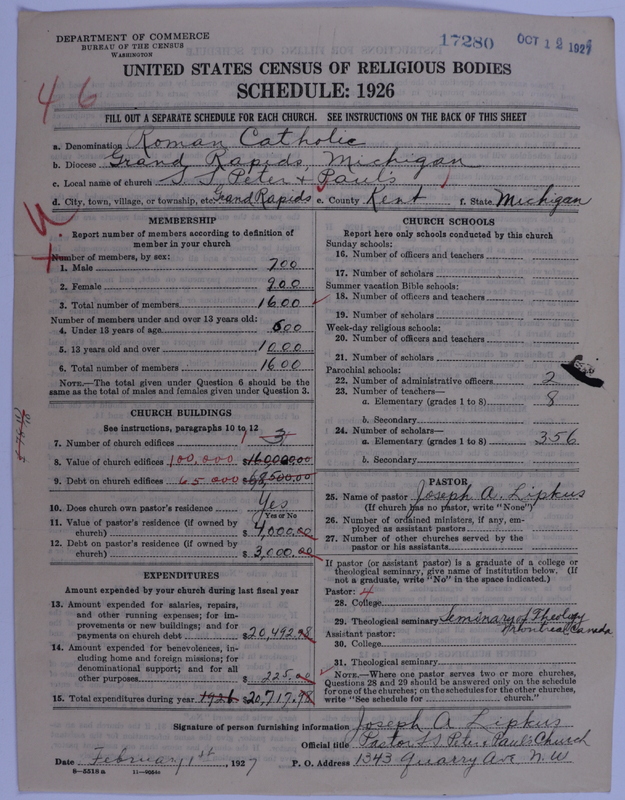 DEPARTMENT OF COMMERCE
BUREAU OF THE CENSUS
WASHINGTON
17280 OCT 12 192
UNITED STATES CENSUS OF RELIGIOUS BODIES
SCHEDULE: 1926
46
FILL OUT A SEPARATE SCHEDULE FOR EACH CHURCH. SEE INSTRUCTIONS ON THE BACK OF THIS SHEET
a. Denomination Roman Catholic
b. Diocese Grand Rapids, Michigan
c. Local name of church S. S. Peter + Pauls
d. City, town, village, or township, etc. Grand Rapids e. County Kent f. State Michigan
MEMBERSHIP
Report number of members according to definition of
member in your church
Number of members, by sex:
1. Male 700
2. Female 900
3. Total number of members 1600
Number of members under and over 13 years old:
4. Under 13 years of age 600
5. 13 years old and over 1000
6. Total number of members 1600
NOTE.—The total given under Question 6 should be the
same as the total of males and females given under Question 3.
CHURCH BUILDINGS
See instructions, paragraphs 10 to 12
7. Number of church edifices 1 3
8. Value of church edifices 100,000 $160000.00
9. Debt on church edifices 65000 $68,500.00
10. Does church own pastor's residence Yes
Yes or No
11. Value of pastor's residence (if owned by
church) $4,000.00
12. Debt on pastor's residence (if owned by
church) $3,000.00
EXPENDITURES
Amount expended by your church during last fiscal year
13. Amount expended for salaries, repairs,
and other running expenses; for im-
provements or new buildings; and for
payments on church debt $20,492.98
14. Amount expended for benevolences, in-
cluding home and foreign missions; for
denominational support; and for all
other purposes $225.00
15. Total expenditures during year 1926 $20,717.98
CHURCH SCHOOLS
Report here only schools conducted by this church
Sunday schools:
16. Number of officers and teachers
17. Number of scholars
Summer vacation Bible schools:
18. Number of officers and teachers
19. Number of scholars
Week-day religious schools:
20. Number of officers and teachers
21. Number of scholars
Parochial schools:
22. Number of administrative officers 2
23. Number of teachers—
a. Elementary (grades 1 to 8) 8
b. Secondary
24. Number of scholars—
a. Elementary (grades 1 to 8) 356
b. Secondary
PASTOR
25. Name of pastor Joseph A. Lipkus
(If church has no pastor, write "None")
26. Number of ordained ministers, if any, em-
ployed as assistant pastors
27. Number of other churches served by the
pastor or his assistants
If pastor (or assistant pastor) is a graduate of a college or
theological seminary, give name of institution below. (If
not a graduate, write "No" in the space indicated.)
Pastor: 4
28. College
29. Theological seminary Seminary of Theology
Montreal, Canada
Assistant pastor:
30. College
31. Theological seminary
NOTE.—Where one pastor serves two or more churches,
Questions 28 and 29 should be answered only on the schedule
for one of the churches; on the schedules for the other churches,
write "See schedule for church."
Signature of person furnishing information Joseph A Lipkus
Official title Pastor S S Peter & Pauls Church
Date February 1st, 1927 P. O. Address 1343 Quarry Ave. N.W
8-5518a 11-9054s